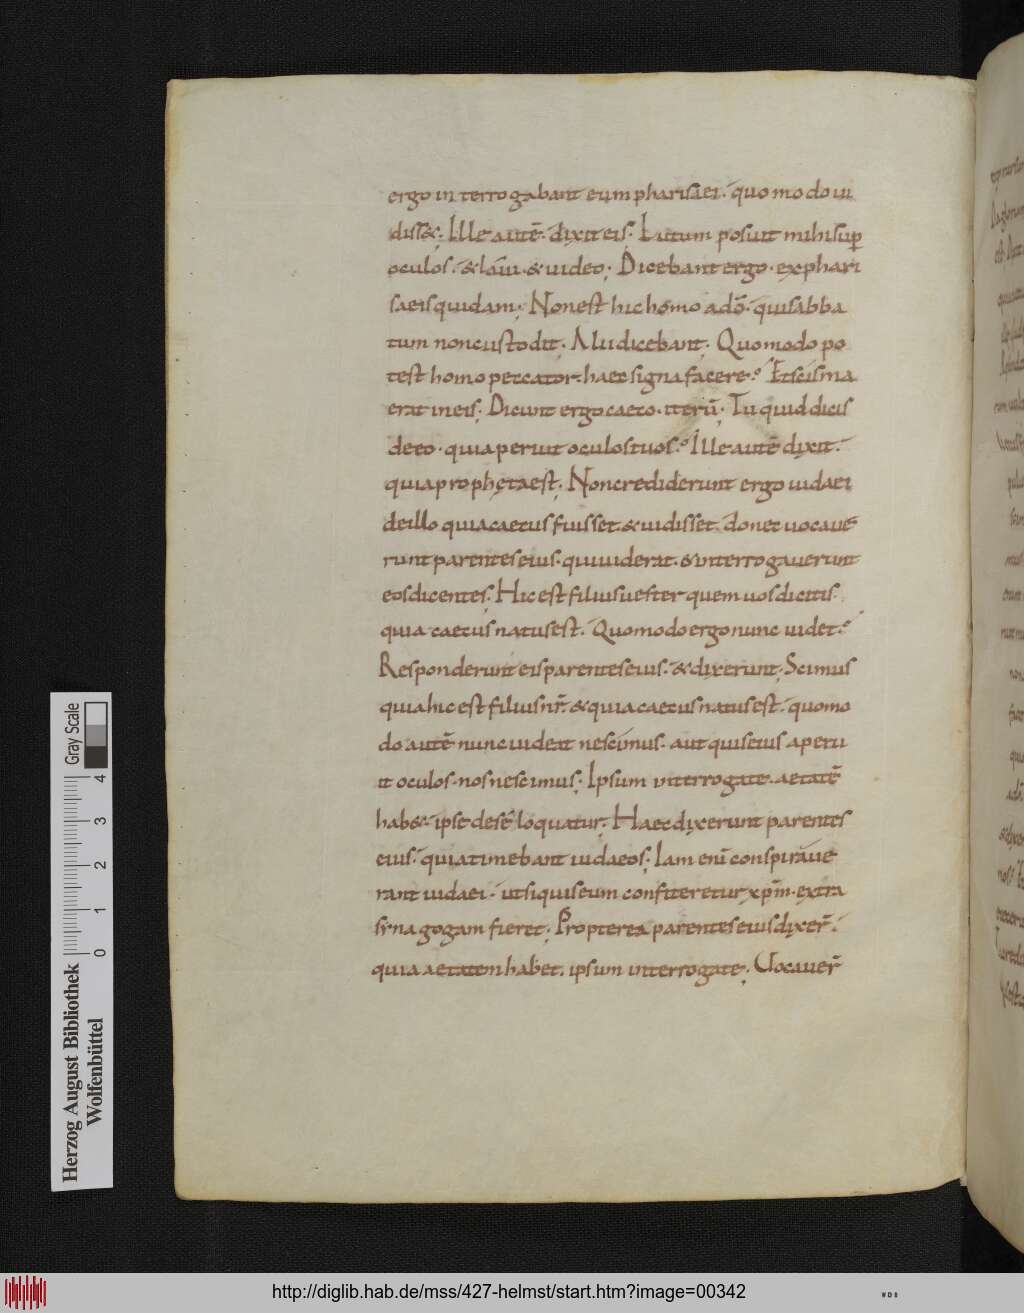 ergo interrogabant eum pharisaei· quomodo ui
diss&·; Ille autē· dixit eis· Lutum posuit mihi sup
oculos· & laui· & uideo; Dicebant ergo· ex phari
saeis quidam; Non est hic homo a dō· qui sabba
tum non custodit; Alii dicebant; Quomodo po
test homo peccator· haec signa facere· Et scisma
erat in eis; Dicunt ergo caeco· iterū· Tu quid dicis
de eo· quia peruit oculos tuos· Ille autē dixit·
quia prophęta est; Non crediderunt ergo iudaei
de illo quia caecus fuisset· & uidisset· donec uocaue
runt parentes eius· qui uiderat· & interrogauerunt
eos dicentes; Hic est filius uester quem uos dicitis
quia caecus natus est· Quomodo ergo nunc uidet·
Responderunt eis parentes eius· & dixerunt; Scimus
quia hic est filius nr̄· & quia caecus natus est· quomo
do autē nunc uideat nescimus· aut quis eius aperu
it oculos· nos nescimus; Ipsum interrogate· aetatē
hab&· ipse de sē loquatur; Haec dixerunt parentes
eius· quia timebant iudaeos; Iam enī conspiraue
rant iudaei· ut si quis eum confiteretur xp̄m· extra
synagogam fieret; Propterea parentes eius dixer̄·
quia aetatem habet· ipsum interrogate; Uocauer̄
Herzog August Bibliothek
Wolfenbüttel
0 1 2 3 4
Gray Scale
http://diglib.hab.de/mss/427-helmst/start.htm?image=00342